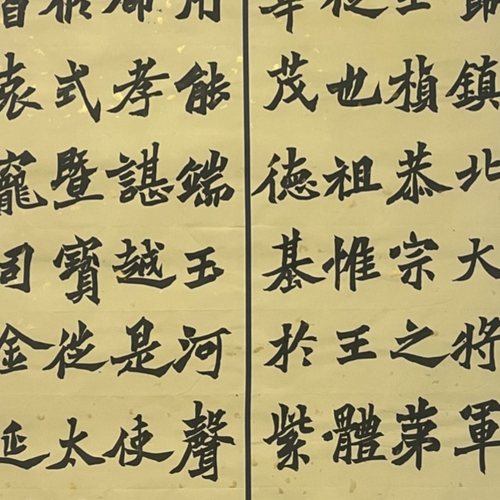 節鎮北大將軍
王楨恭宗之第
從也祖惟王體
華茂德基於紫
用能端玉河聲
孝諶越是使
式暨寶從太
衷寵司金延